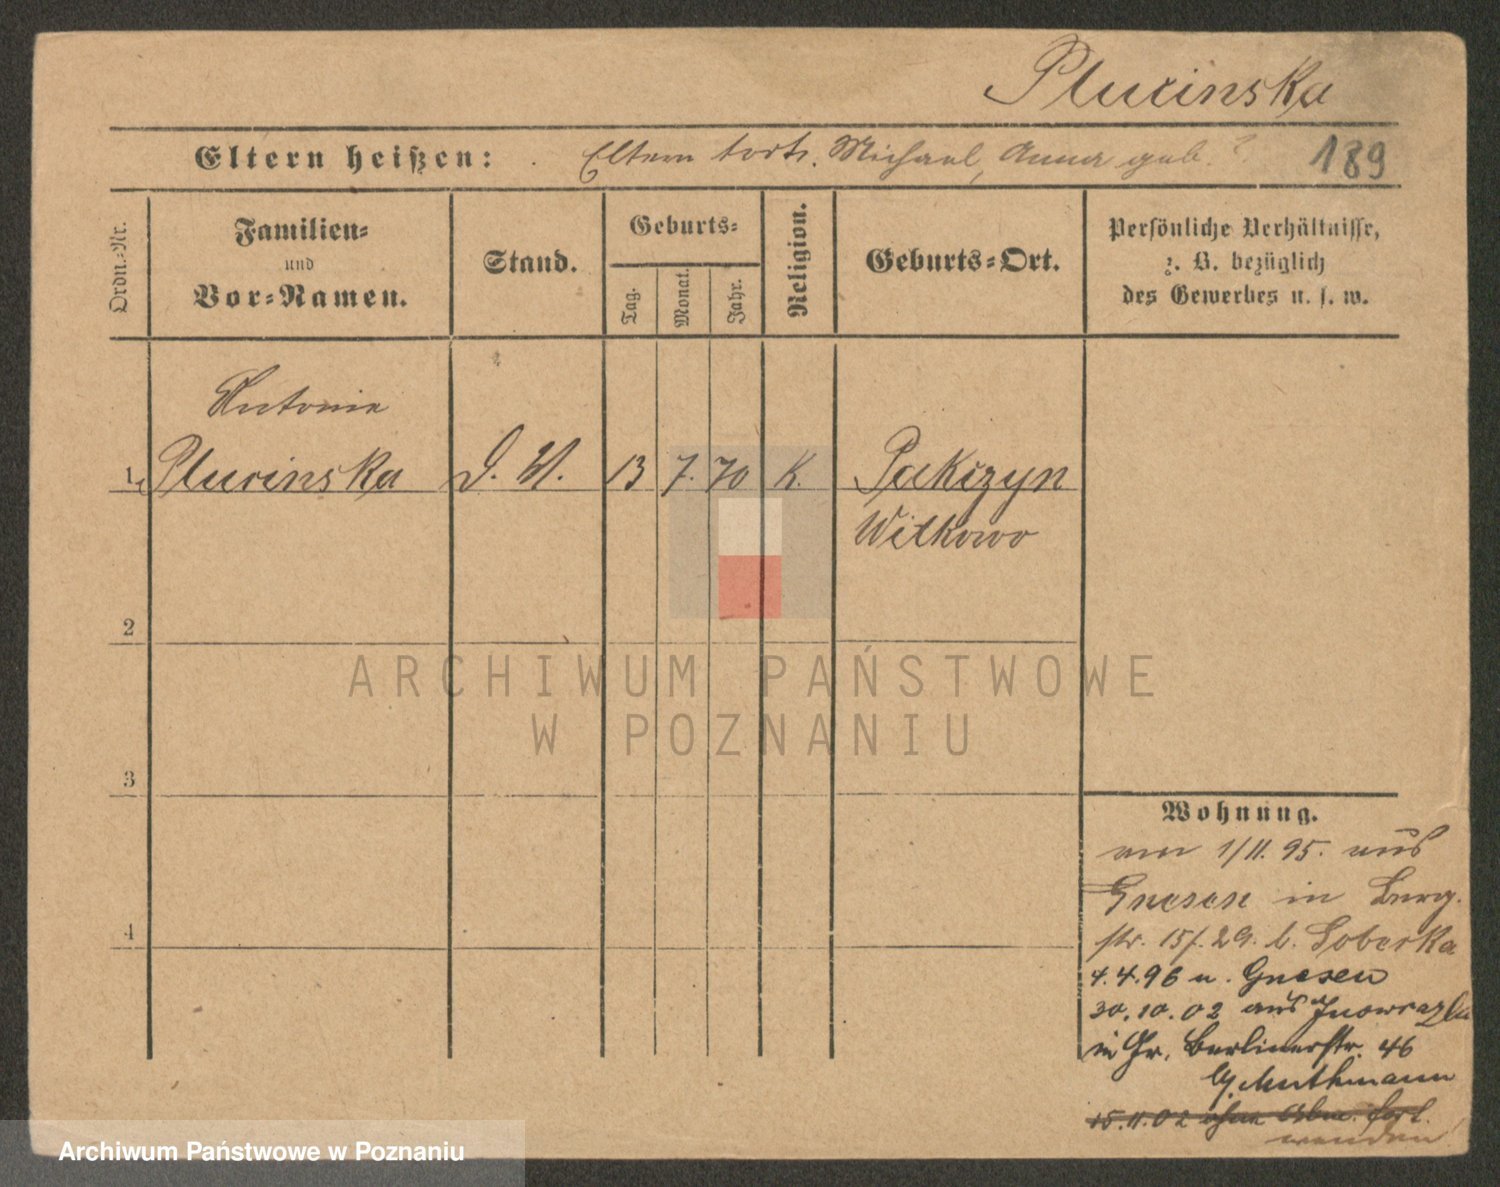 Plucinska
Eltern heißen: Eltern todt. Michael, Anna geb. ?
189
Ordn.-Nr.
Familien-
und
Vor-Namen.
Stand.
Geburts-
Tag.
Monat.
Jahr.
Religion.
Geburts-Ort.
Persönliche Verhältnisse,
z. B. bezüglich
des Gewerbes u. s. w.
Antonie
1. Plucinska D. M. 13 7. 70 K. Pakczyn
Witkowo
2
3
4
ARCHIWUM PAŃSTWOWE
W POZNANIU
Wohnung.
am 1/11. 95. aus
Gnesen in Berg.
str. 15/. 29. b. Soberka
4.4.96 n. Gnesen
30.10.02 aus Inowrazlaw
in Gr. Berlinerstr. 46
Muthmann
15.11.02 ohne Abm. fort.
wenden!
Archiwum Państwowe w Poznaniu